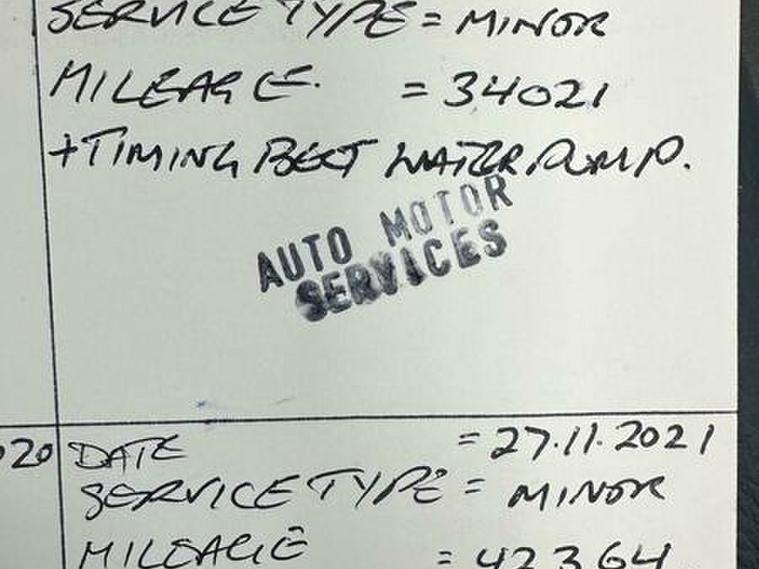 SERVICE TYPE = MINOR
MILEAGE. = 34021
+TIMING BELT WATER PUMP.
AUTO MOTOR
SERVICES
20
DATE = 27.11.2021
SERVICE TYPE = MINOR
MILEAGE = 42364